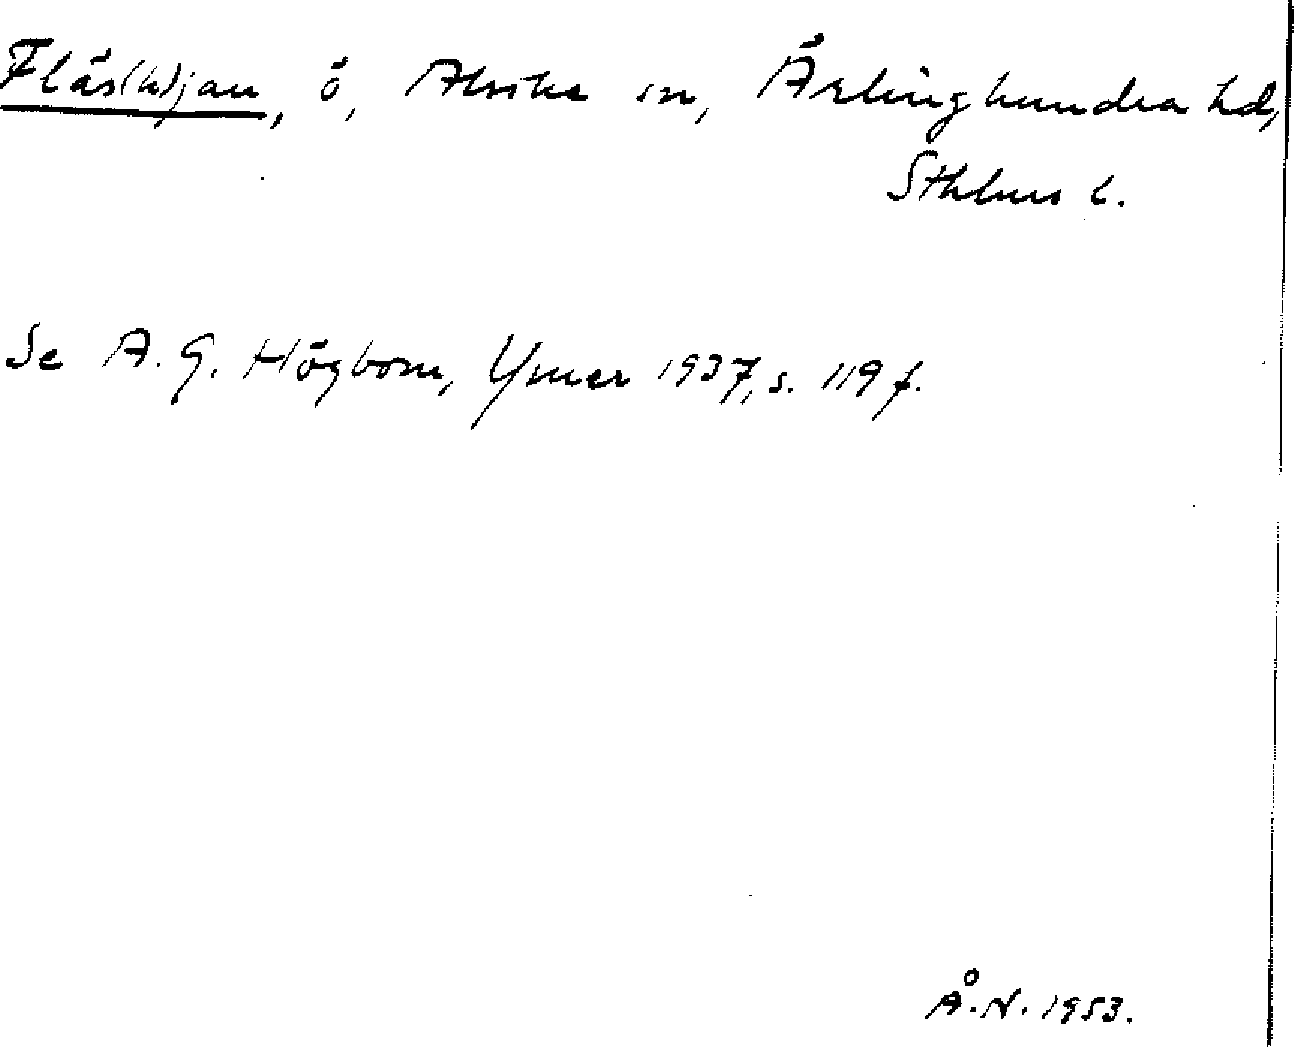 Fläs(k)jan, ö, Alsike sn, Ärlinghundra hd,
Sthlms l.
Se A. G. Högbom, Ymer 1937, s. 119 f.
Å. N. 1953.